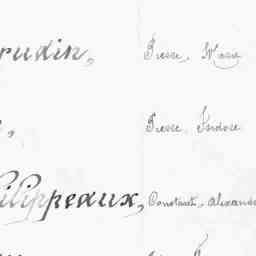 rudin, Pierre, Marie
, Pierre, Isidore
ilippeaux, Constant, Alexand